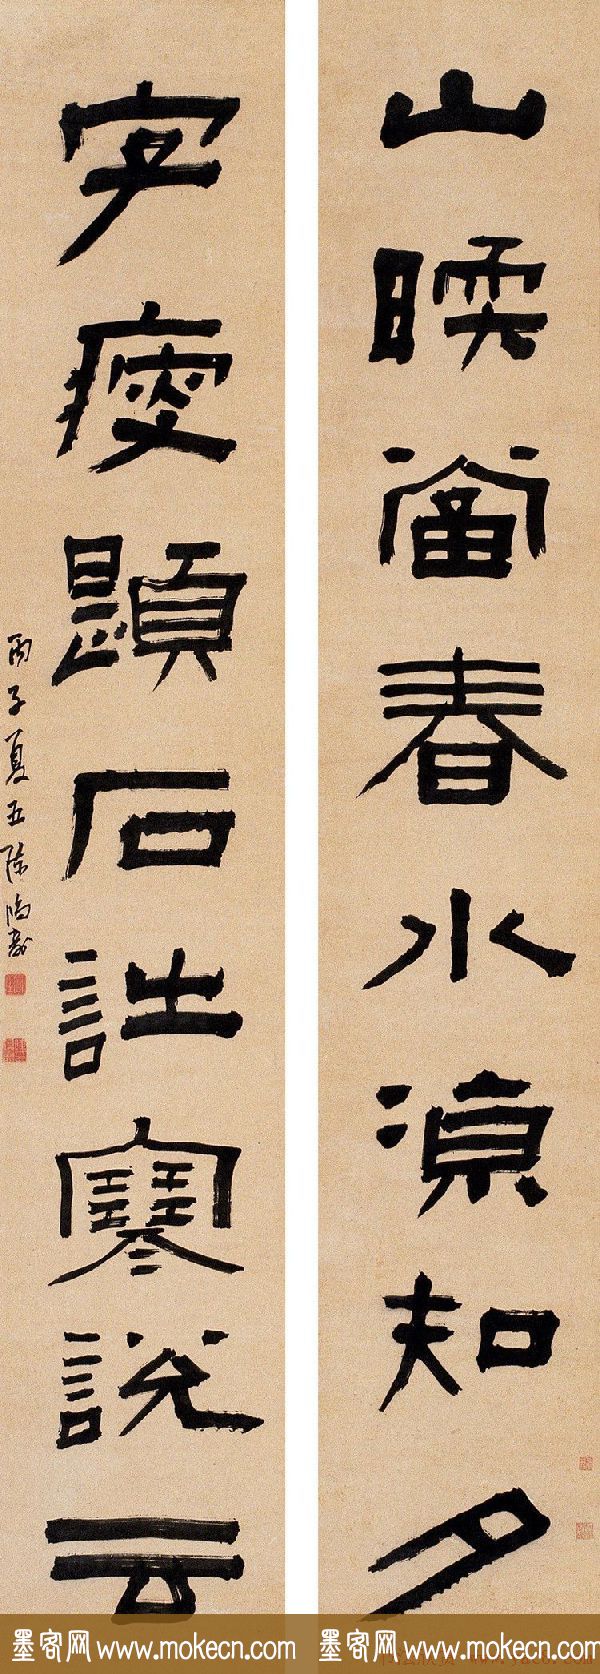 山㬉當春水涼知夕
字瘦題石寒說云
丙子夏五陳鴻壽
墨客网 www.mokecn.com
墨客网 www.mokecn.com